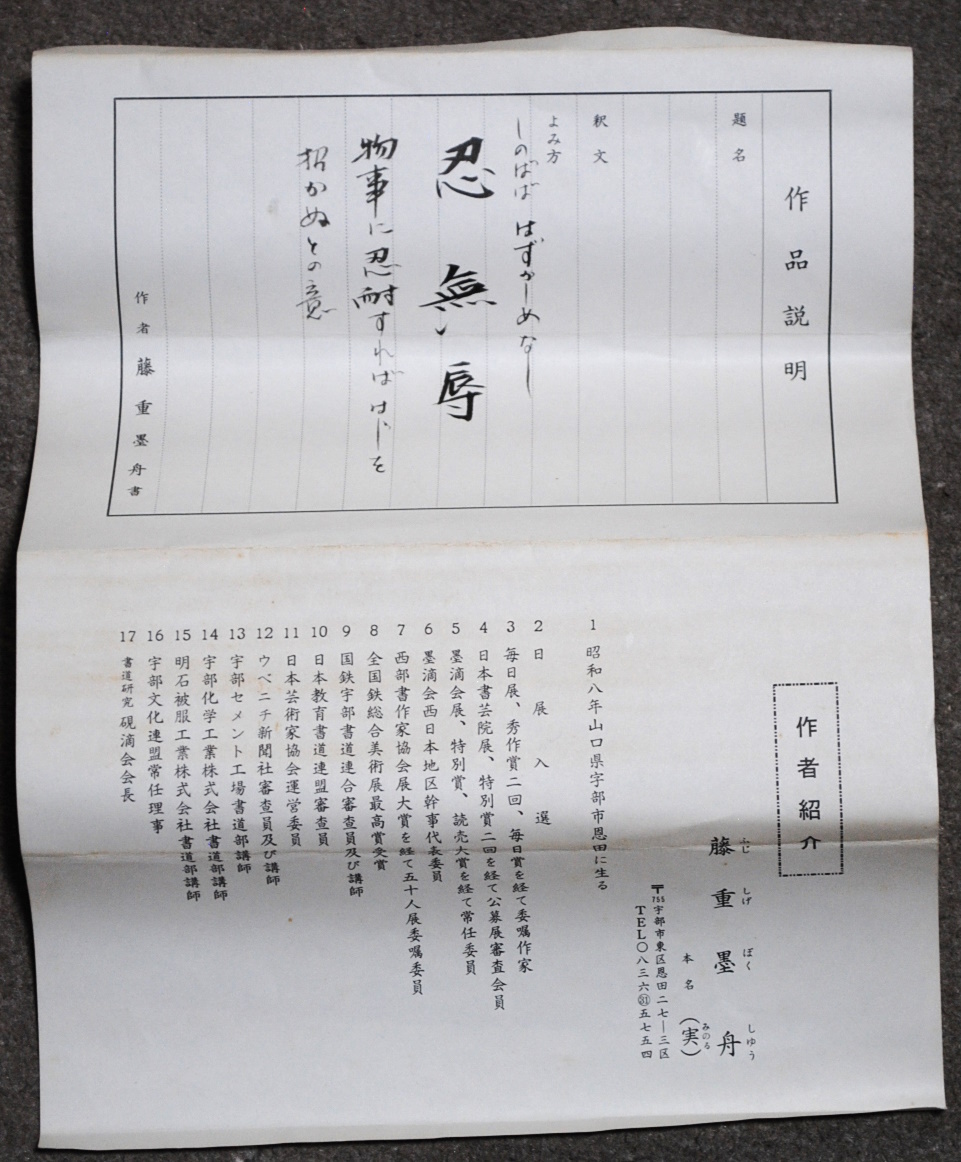 作品説明
題名
釈文
よみ方
しのばば はずかしめなし
忍無辱
物事に忍耐すれば はじを
招かぬとの意
作者 藤重墨舟書
作者紹介
ふじ しげ ぼく しゆう
藤重墨舟
本名(実)
みのる
〒755 宇部市東区恩田二七―三区
TEL〇八三六㉛五七五四
1 昭和八年山口県宇部市恩田に生る
2 日展入選
3 毎日展、秀作賞二回、毎日賞を経て委嘱作家
4 日本書芸院展、特別賞二回を経て公募展審査会員
5 墨滴会展、特別賞、読売大賞を経て常任委員
6 墨滴会西日本地区幹事代表委員
7 西部書作家協会展大賞を経て五十人展委嘱委員
8 全国鉄総合美術展最高賞受賞
9 国鉄宇部書道連合審査員及び講師
10 日本教育書道連盟審査員
11 日本芸術家協会運営委員
12 ウベニチ新聞社審査員及び講師
13 宇部セメント工場書道部講師
14 宇部化学工業株式会社書道部講師
15 明石被服工業株式会社書道部講師
16 宇部文化連盟常任理事
17 書道研究 硯滴会会長